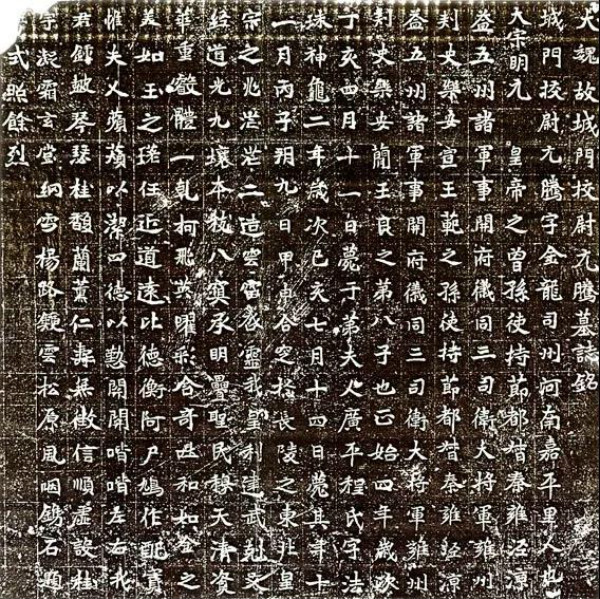 大魏故城門校尉元騰墓誌銘
城門校尉元騰字金龍司州河南嘉平里人也
大宗明元皇帝之曾孫使持節都督秦雍涇涼
益五州諸軍事開府儀同三司衛大將軍雍州
刾史樂安宣王範之孫使持節都督秦雍涇涼
益五州諸軍事開府儀同三司衛大將軍雍州
刾史樂安簡王良之第八子也正始四年歲次
丁亥四月十一日薨于第夫人廣平程氏字法
珠神龜二年歲次己亥七月十四日薨其年十
一月丙子朔九日甲申合窆於長陵之東北皇
宗之兆茫茫二造雲雷
絵道光九壤本枝八寅承明疊聖民
華重
美如王之任近道遠比德衡阿尸鳩作配
惟夫人蘋蘩以潔四德以懃開開喈喈左右
君鍾皷琴瑟桂馥蘭薰仁壽無徵信順虛設桂
字凝霜玄堂網雪楊路雲松原風咽石
式照餘烈